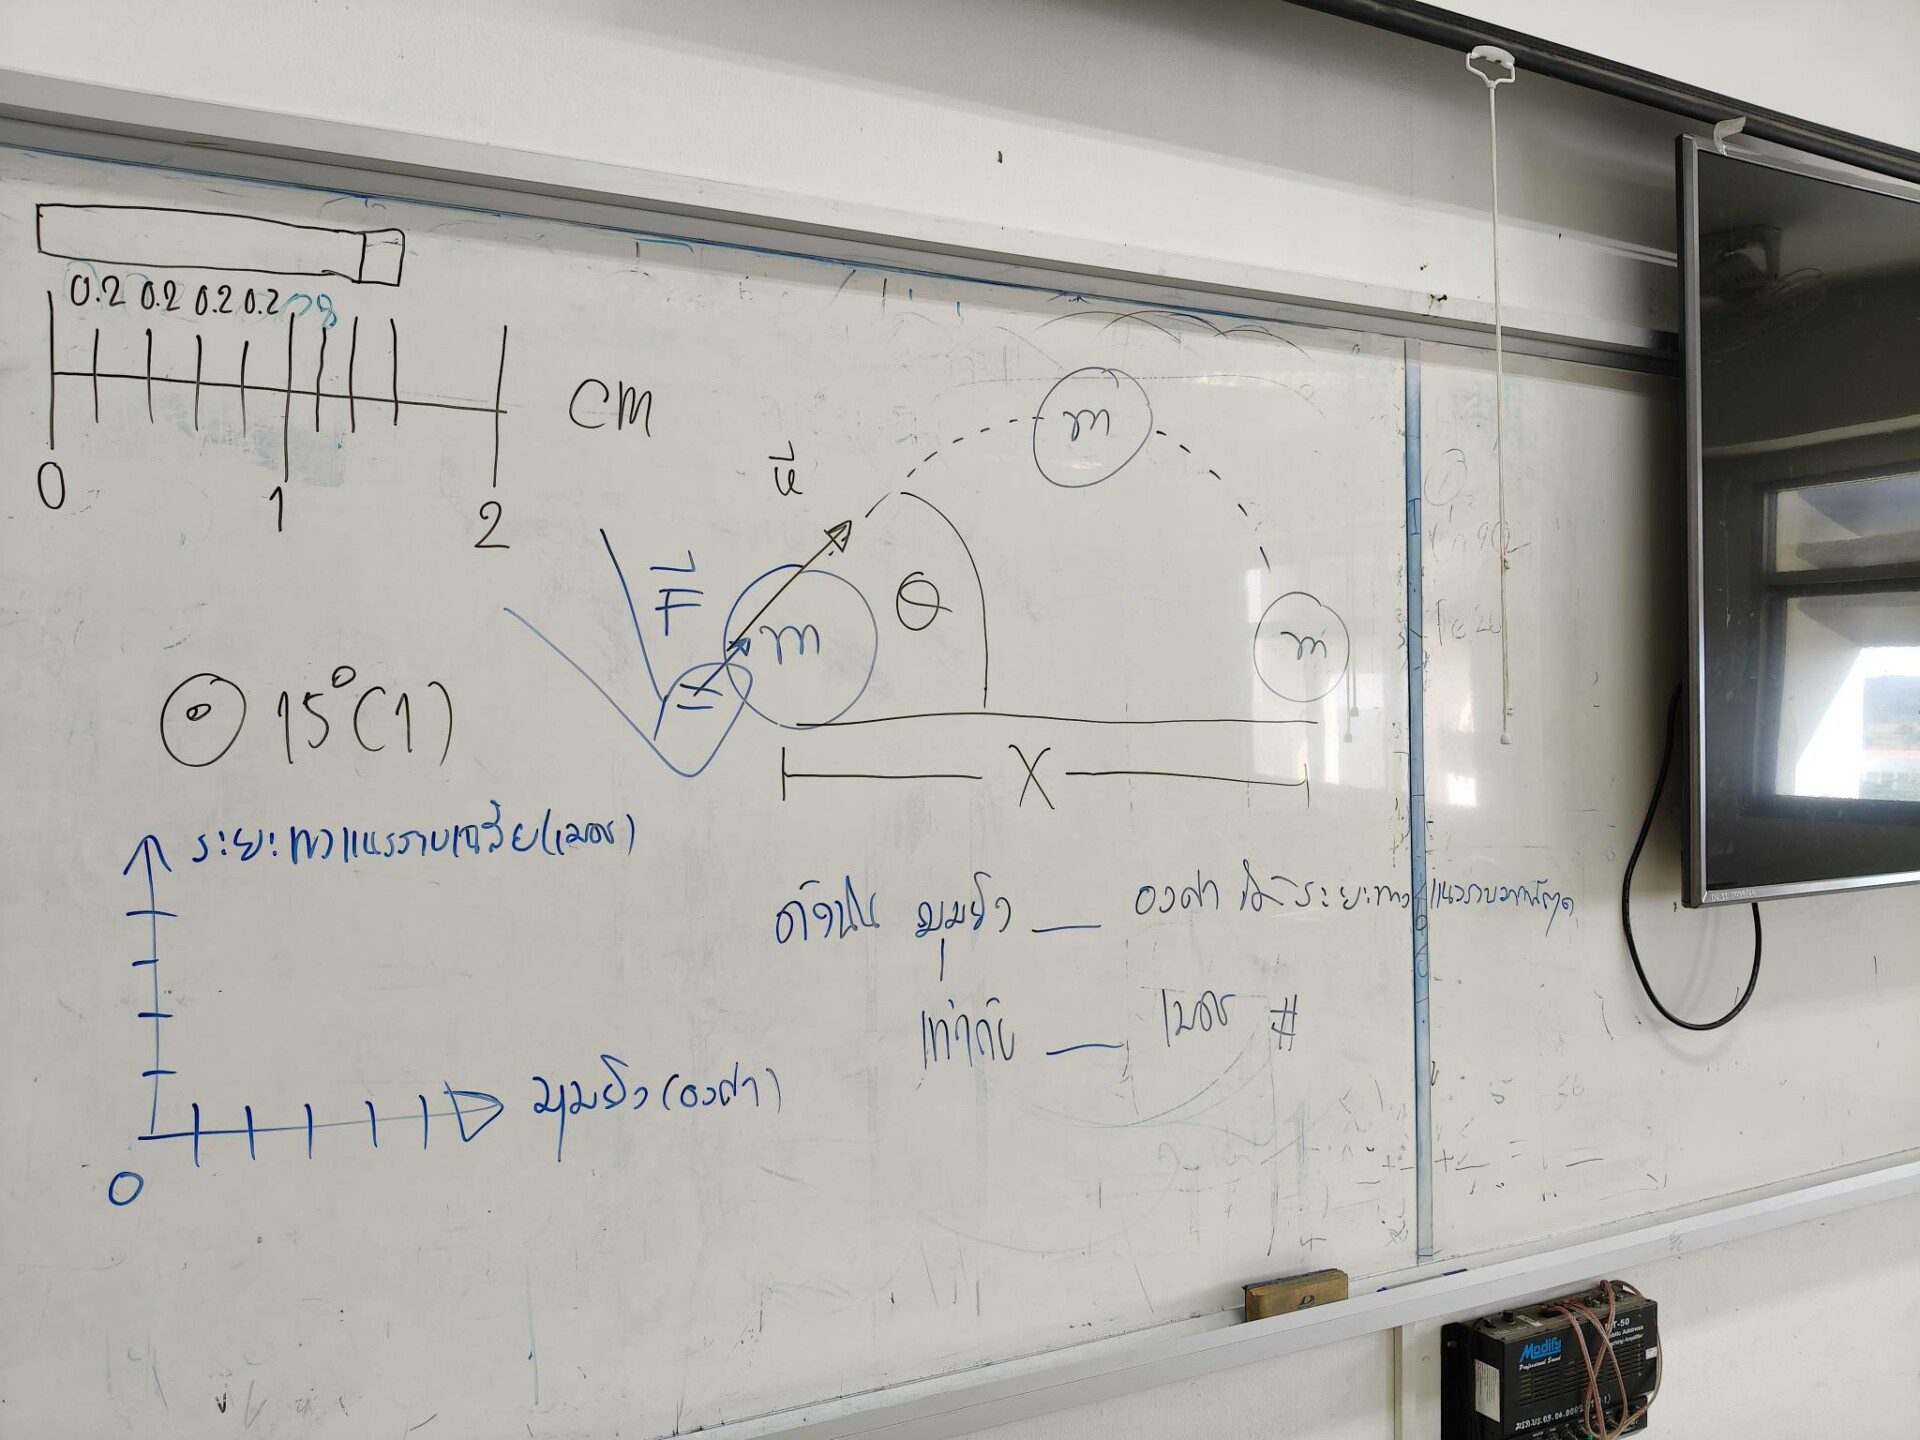 0.2 0.2 0.2 0.2
0 1 2
cm
u
F
m
m
m
θ
15°(1)
X
ระยะทางแนวราบเฉลี่ย(เมตร)
ดังนั้น มุมยิง __ องศา ได้ระยะทางแนวราบมากที่สุด
เท่ากับ __ เมตร #
มุมยิง (องศา)
0
Modify
Professional Sound